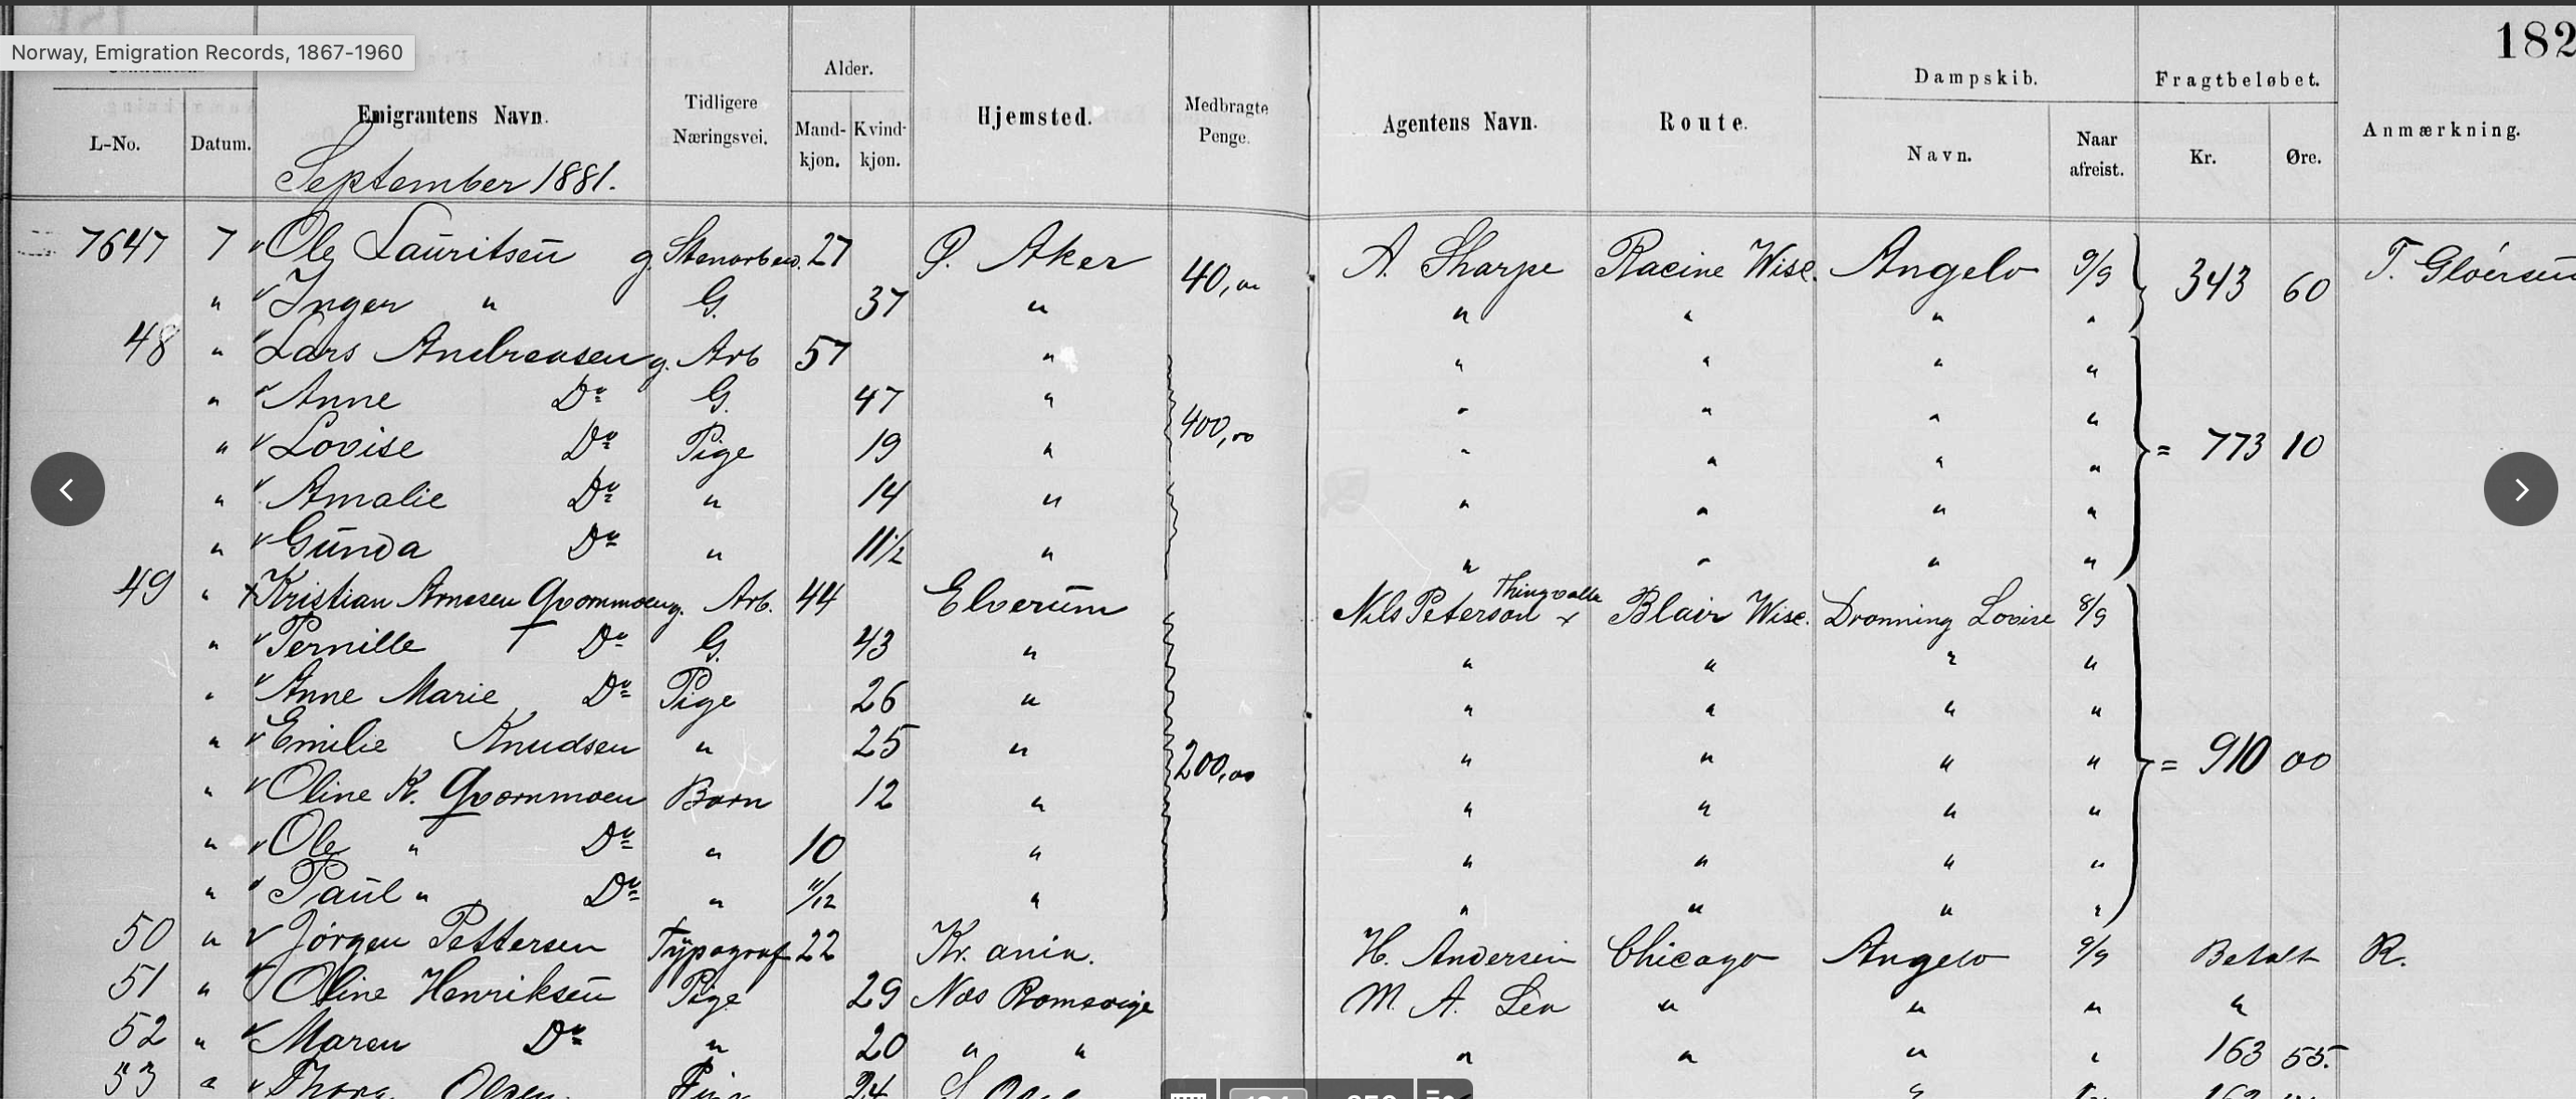 Norway, Emigration Records, 1867-1960
182
Alder. Dampskib. Fragtbeløbet.
L-No. Datum. Emigrantens Navn. Tidligere Næringsvei. Mand-kjøn. Kvind-kjøn. Hjemsted. Medbragte Penge. Agentens Navn. Route. Navn. Naar afreist. Kr. Øre. Anmærkning.
September 1881.
7647 7 Ole Lauritsen g. Stenarbeid. 27 P. Aker 40,00 A. Sharpe Racine Wisc. Angelo 9/9 343 60 T. Gløersen
" Inger " G. 37 " " " " "
48 " Lars Andreasen g. Arb 57 " " " " "
" Anne Do G. 47 " 400,00 " " " "
" Lovise Do Pige 19 " " " " " = 773 10
" Amalie Do " 14 " " " " "
" Gunda Do " 11 1/2 " " " " "
49 " Kristian Arnesen Qvornmoen g. Arb. 44 Elverum Nils Peterson Thingvalla x Blair Wisc. Dronning Lovise 8/9
" Pernille Do G. 43 " " " " "
" Anne Marie Do Pige 26 " " " " "
" Emilie Knudsen " 25 " 200,00 " " " " = 910 00
" Oline K. Qvornmoen Barn 12 " " " " "
" Ole " Do " 10 " " " " "
" Paul " Do " 11/12 " " " " "
50 " Jørgen Pettersen Typograf 22 Kr. ania. H. Andersen Chicago Angelo 9/9 Betalt R.
51 " Oline Henriksen Pige 29 Næs Romerige M. A. Lèn " " " "
52 " Maren Do " 20 " " " " " " 163 55.
53 " Thora Olsen Pige 24